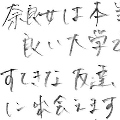 奈良女は本当
良い大学で
すてきな友達
に出会えます